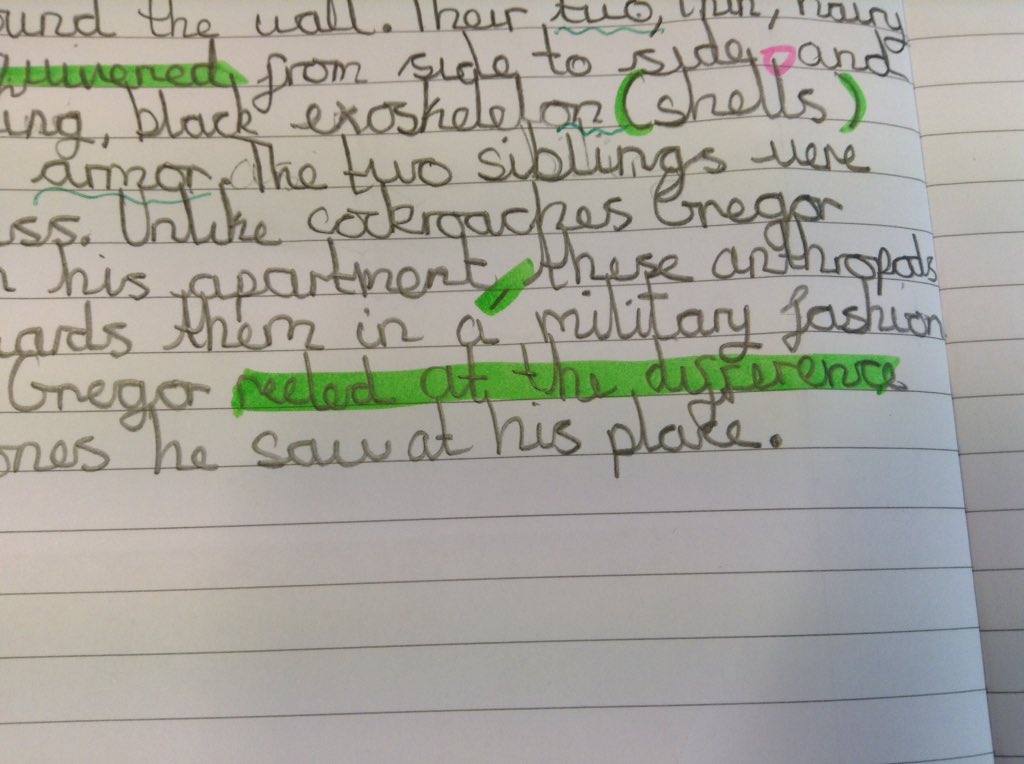 ound the wall. Their two, thin, hairy
quivered, from side to side, and
ing, black exoskeleton (shells)
armor. The two siblings were
ss. Unlike cockroaches Gregor
n his apartment, these anthropods
ards them in a military fashion
Gregor reeled at the difference
ones he saw at his place.